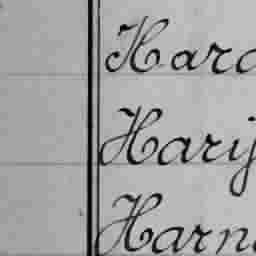 Harc
Harij
Harn